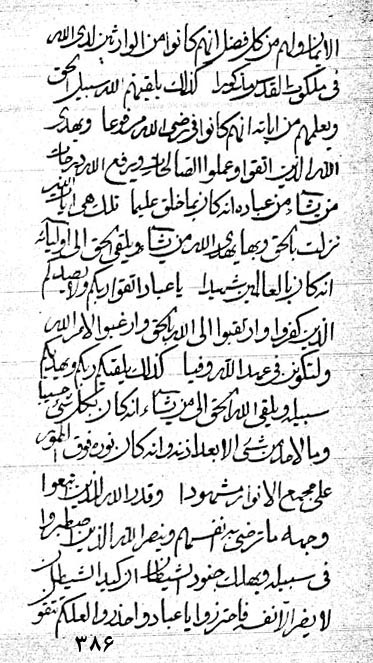 الامناء ولهم من كل فضل انهم كانوا من الوارثين لدى الله
فى ملكوت القدس مذكورا كذلك يلقيهم الله سبيل الحق
ويعلمهم من اياته انهم كانوا فى رضى الله مرفوعا ويهدى
الله الذين اتقوا وعملوا الصالحات ويرفع الله درجات
من يشاء من عباده انه كان بما خلق عليما تلك هى ايات الله
نزلت بالحق وبها يهدى الله من يشاء ويلقى الحق الى اوليائه
انه كان بالعالمين شهيدا يا عباد اتقوا ربكم ولا يصدكم
الذين كفروا وارتقبوا الى الله بالحق وارغبوا الامر الله
ولتكونن فى عهد الله وفيا كذلك يلقيكم ربكم ويهديكم
سبيله ويلقى الله الحق الى من يشاء انه كان بكل شئ حسيبا
وما لاحد من شئ الا بعد اذنه وانه كان نوره فوق
على مجمع الانوار مشهودا وقدر الله للذين تبعوا
وجهه ما ترضى به انفسهم وينصر الله الذين اصطبروا
فى سبيله ويهلك جنود الشيطان ان كيد الشيطان
لا يضر الا نفسه فاحترزوا يا عباد واحذروا لعلكم تتقون
٣٨۶